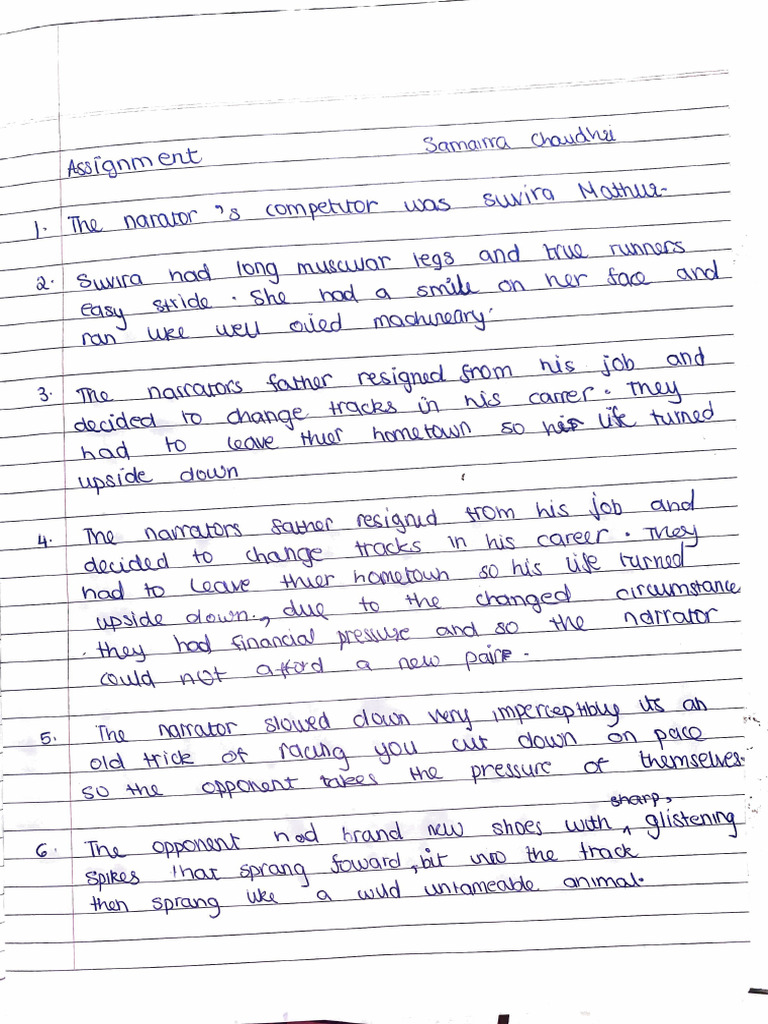 Assignment Samairra Chaudhri
1. The narator's competitor was Suvira Mathur.
2. Suvira had long muscular legs and true runners
easy stride. She had a smile on her face and
ran like well oiled machineary.
3. The narrators father resigned from his job and
decided to change tracks in his carrer. They
had to leave thier hometown so his life turned
upside down
4. The narrators father resigned from his job and
decided to change tracks in his career. They
had to leave thier hometown so his life turned
upside down., due to the changed circumstance
. they had financial pressure and so the narrator
could not afford a new pair.
5. The narrator slowed down very imperceptibly its an
old trick of racing you cut down on pace
so the opponent takes the pressure of themselves.
6. The opponent had brand new shoes with sharp, glistening
spikes that sprang foward, bit into the track
then sprang like a wild untameable animal.